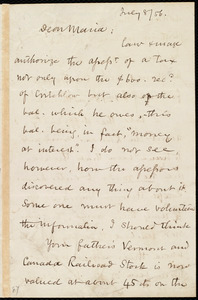 July 8/56.
Dear Maria:
Law & usage
authorize the assessᵗ. of a Tax
not only upon the $600. recᵈ.
of Critchlow but also of the
bal. which he owes, – this
bal. being, in fact, "money
at interest". I do not see
however, how the assessors
discovered any thing about it
Some one must have volunteered
the information, I should think
Your father's Vermont and
Canada Railroad Stock is now
valued at about 45 ds. on the